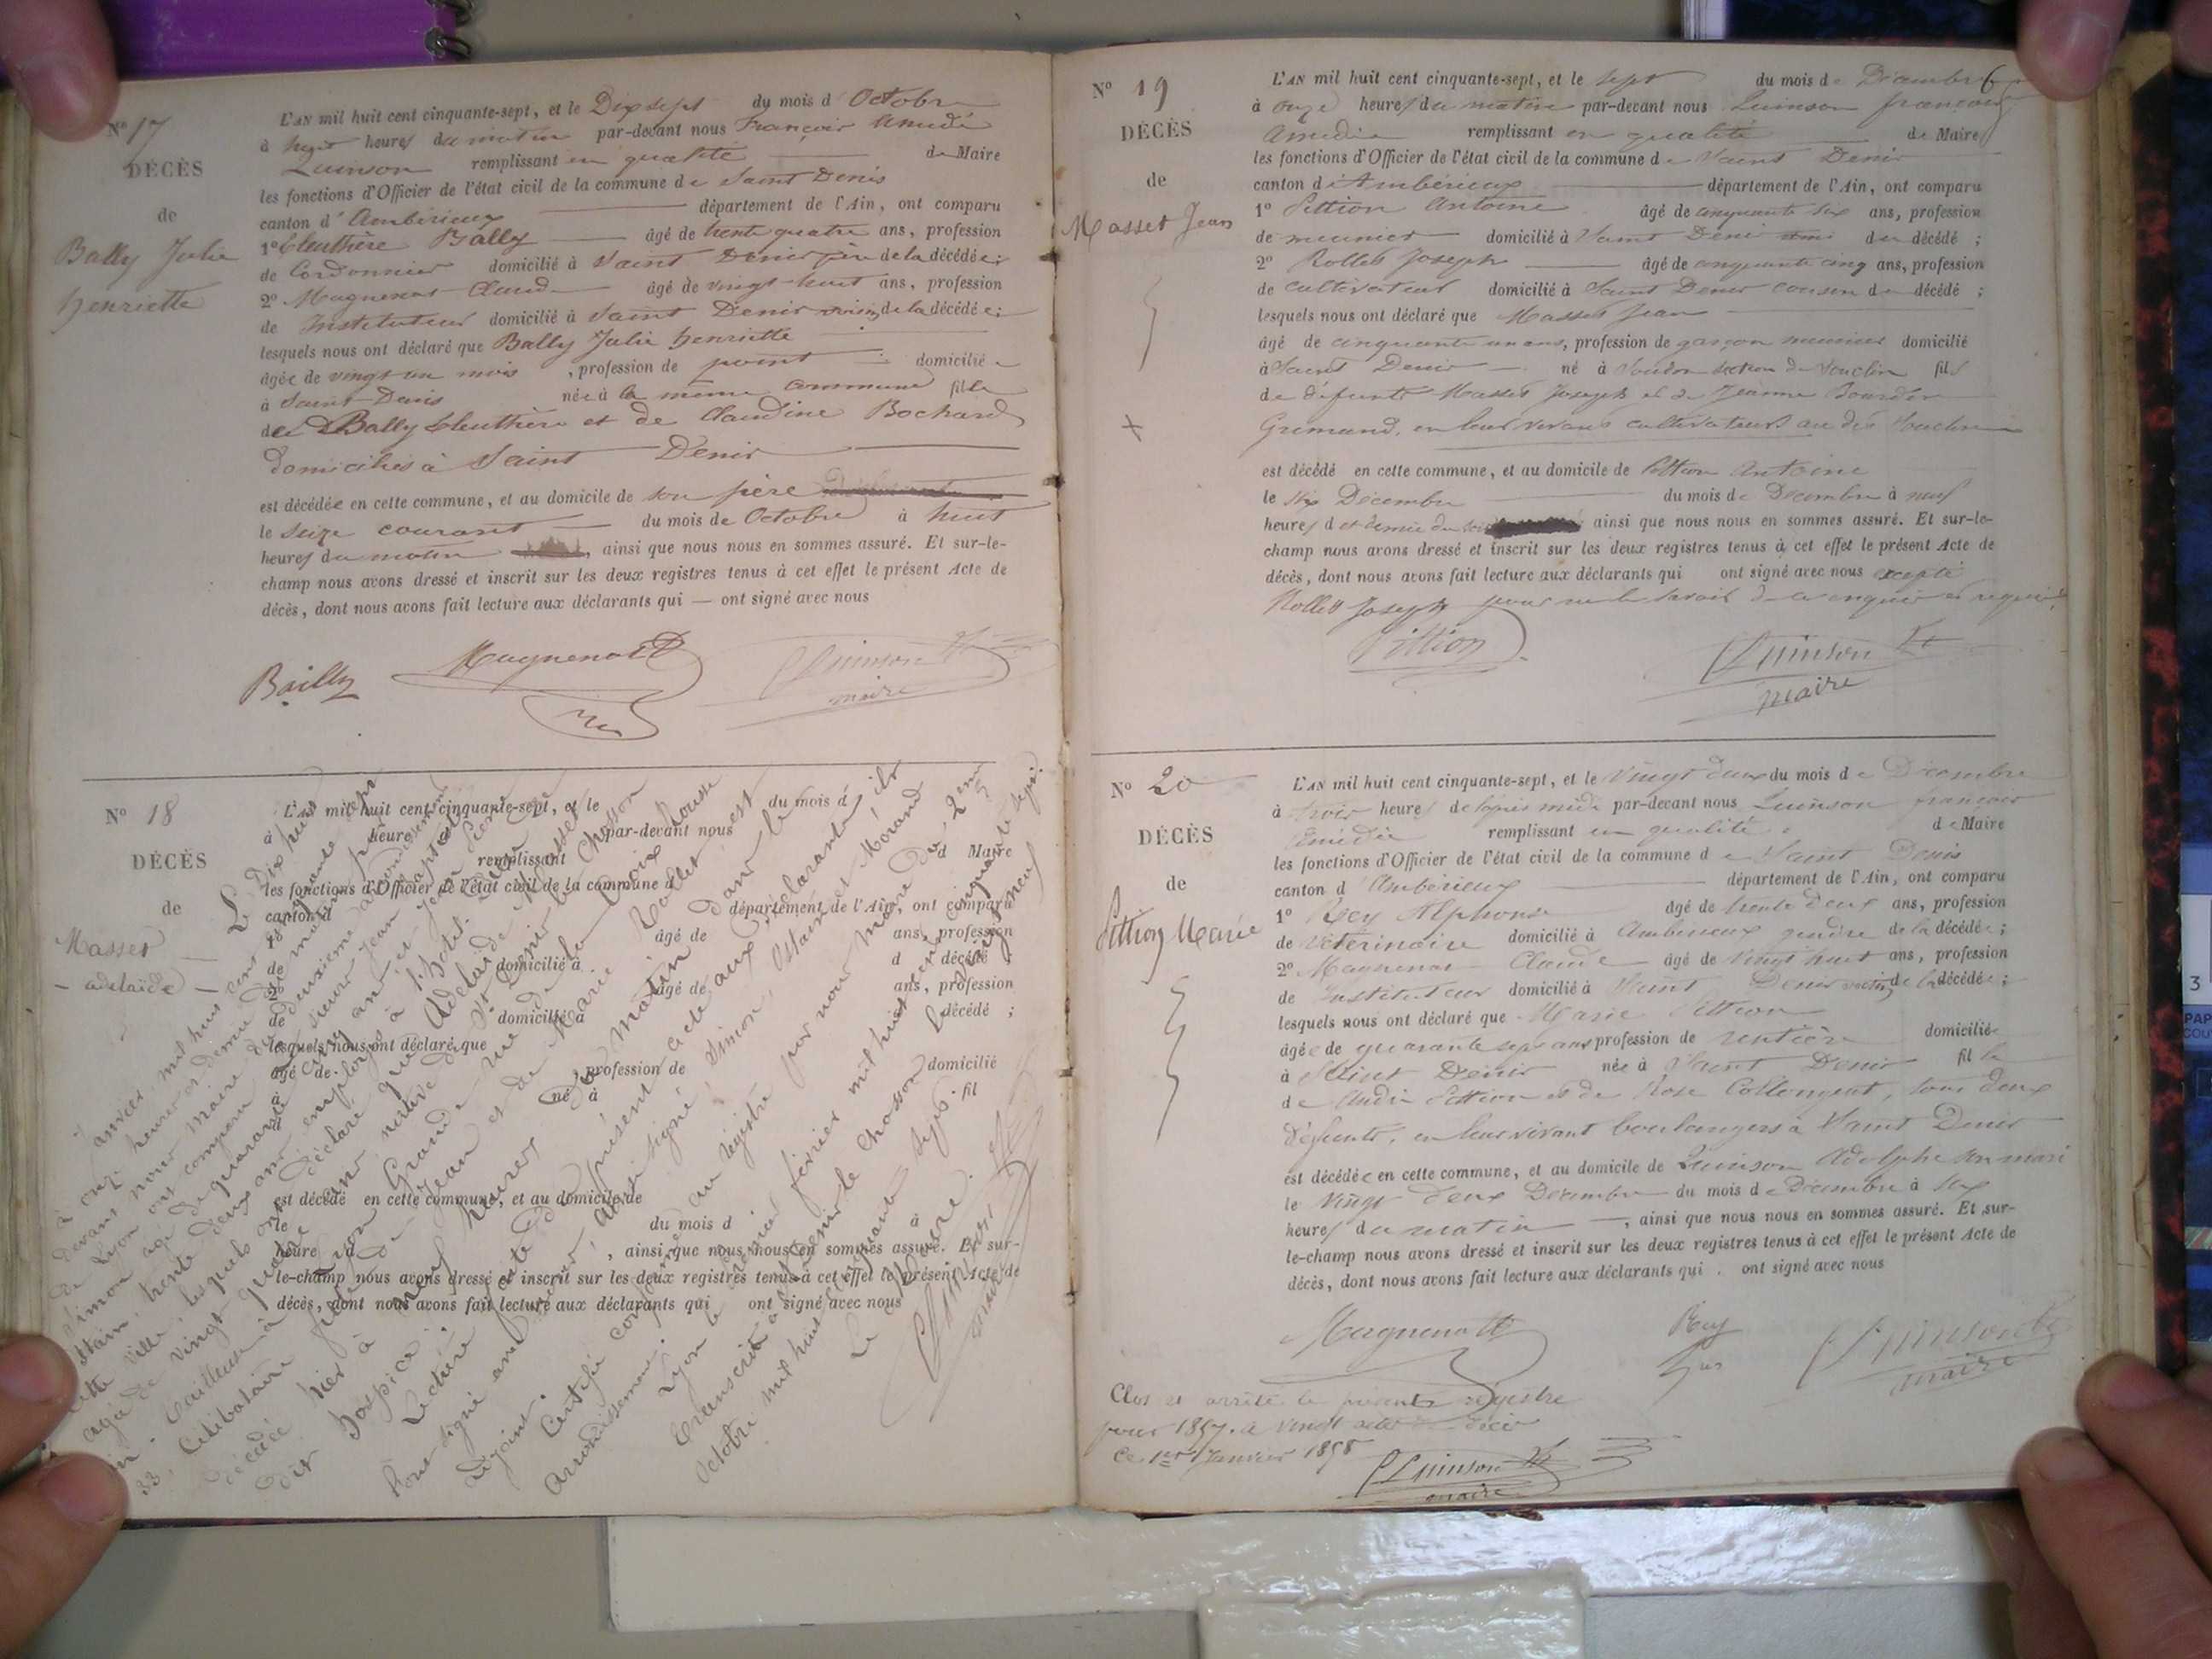 N° 17
DÉCÈS
de
Bally Julie
henriette
L'AN mil huit cent cinquante-sept, et le Dix sept du mois d' Octobre
à huit heures du matin par-devant nous François Amédé
Quinson remplissant en qualité de Maire
les fonctions d'Officier de l'état civil de la commune de Saint Denis
canton d' Ambérieux département de l'Ain, ont comparu
1° Eleuthère Bally âgé de trente quatre ans, profession
de Cordonnier domicilié à Saint Denis père de la décédée;
2° Magnenat Claude âgé de vingt-huit ans, profession
de Instituteur domicilié à Saint Denis voisin de la décédée;
lesquels nous ont déclaré que Bally Julie henriette
âgée de vingt un mois, profession de point domiciliée
à Saint-Denis née à la même commune fille
de Bally Eleuthère et de Claudine Bochard
domiciliés à Saint Denis
est décédée en cette commune, et au domicile de son père
le seize courant du mois de Octobre à huit
heures du matin, ainsi que nous nous en sommes assuré. Et sur-le-
champ nous avons dressé et inscrit sur les deux registres tenus à cet effet le présent Acte de
décès, dont nous avons fait lecture aux déclarants qui — ont signé avec nous
Bailly Magnenat Quinson
maire
N° 18
DÉCÈS
de
Masset
adelaïde
L'AN mil huit cent cinquante-sept, et le du mois d
à heure par-devant nous
remplissant d Maire
les fonctions d'Officier de l'état civil de la commune d
canton d département de l'Ain, ont comparu
1° âgé de ans, profession
de domicilié à d décédé ;
2° âgé de ans, profession
de domicilié à d décédé ;
lesquels nous ont déclaré que
âgé de , profession de domicilié
à né à fil
est décédé en cette commune, et au domicile de
le du mois d à
heure d , ainsi que nous nous en sommes assuré. Et sur-
le-champ nous avons dressé et inscrit sur les deux registres tenus à cet effet le présent Acte de
décès, dont nous avons fait lecture aux déclarants qui ont signé avec nous
Le Dix huit janvier mil huit cent cinquante sept
à onze heures et demie du matin
devant nous maire du deuxième arrondissement
de Lyon ont comparu
Simon âgé de quarante cinq ans et Jean
trente deux ans employés à l'hôtel
cette ville, lesquels ont déclaré que Adelaïde Masset
agée de vingt quatre ans native de St Denis le Chosson
Tailleuse à Lyon Grande rue de la Croix Rousse
33, Célibataire fille de Jean et de Marie Rollet est
décédée hier à neuf heures du matin dans le
dit hospice.
Lecture faite du présent acte aux déclarants ils
l'ont signé avec nous
adjoint.
Certifié conforme au registre par nous maire du 2em
arrondissement,
Lyon le premier février mil huit cent cinquante sept.
Transcrit à St Denis le Chosson le vingt neuf
Octobre mil huit cent cinquante sept.
Le Maire.
N° 19
DÉCÈS
de
Masset Jean
L'AN mil huit cent cinquante-sept, et le sept du mois de Décembre
à onze heures du matin par-devant nous Quinson françois
Amédée remplissant en qualité de Maire
les fonctions d'Officier de l'état civil de la commune de Saint Denis
canton d'Ambérieux département de l'Ain, ont comparu
1° Pittion Antoine âgé de cinquante six ans, profession
de meunier domicilié à Saint Denis ami du décédé ;
2° Rollet Joseph âgé de cinquante cinq ans, profession
de cultivateur domicilié à Saint Denis cousin du décédé ;
lesquels nous ont déclaré que Masset Jean
âgé de cinquante un ans, profession de garçon meunier domicilié
à Saint Denis né à Soudon section de Souclin fils
de défunts Masset Joseph et de Jeanne
Grimand, en leur vivans cultivateurs au dit Souclin
est décédé en cette commune, et au domicile de Pittion Antoine
le six Décembre du mois de Décembre à neuf
heures et demie du soir ainsi que nous nous en sommes assuré. Et sur-le-
champ nous avons dressé et inscrit sur les deux registres tenus à cet effet le présent Acte de
décès, dont nous avons fait lecture aux déclarants qui ont signé avec nous excepté
Rollet Joseph pour ne le savoir de ce enquis et requis.
Pittion Quinson
maire
N° 20
DÉCÈS
de
Pittion Marie
L'AN mil huit cent cinquante-sept, et le vingt deux du mois de Décembre
à trois heures de l'après midi par-devant nous Quinson françois
Amédée remplissant en qualité de Maire
les fonctions d'Officier de l'état civil de la commune de Saint Denis
canton d' Ambérieux département de l'Ain, ont comparu
1° Rey Alphonse âgé de trente deux ans, profession
de Vétérinaire domicilié à Ambérieux gendre de la décédée;
2° Magnenat Claude âgé de vingt huit ans, profession
de Instituteur domicilié à Saint Denis voisin de la décédée;
lesquels nous ont déclaré que Marie Pittion
âgée de quarante sept ans profession de rentière domiciliée
à Saint Denis née à Saint Denis fille
de André Pittion et de Rose Collonget, tous deux
défunts, en leur vivant boulangers à Saint Denis
est décédée en cette commune, et au domicile de Quinson Adolphe son mari
le vingt deux Décembre du mois de Décembre à six
heures du matin —, ainsi que nous nous en sommes assuré. Et sur-
le-champ nous avons dressé et inscrit sur les deux registres tenus à cet effet le présent Acte de
décès, dont nous avons fait lecture aux déclarants qui ont signé avec nous
Magnenat Rey Quinson
maire
Clos et arrêté le présent registre
pour 1857. à vingt actes de décès
Ce 1er Janvier 1858
Quinson
maire